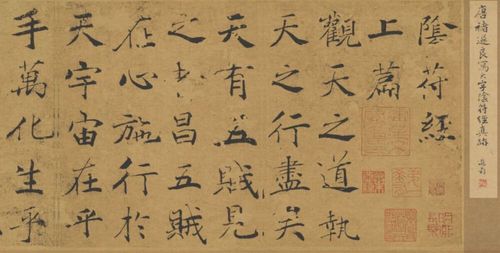 唐褚遂良寫大字陰符經真跡
陰苻經
上篇
觀天之道執
天之行盡矣
天有五賊見
之者昌五賊
在心施行於
天宇宙在乎
手萬化生乎